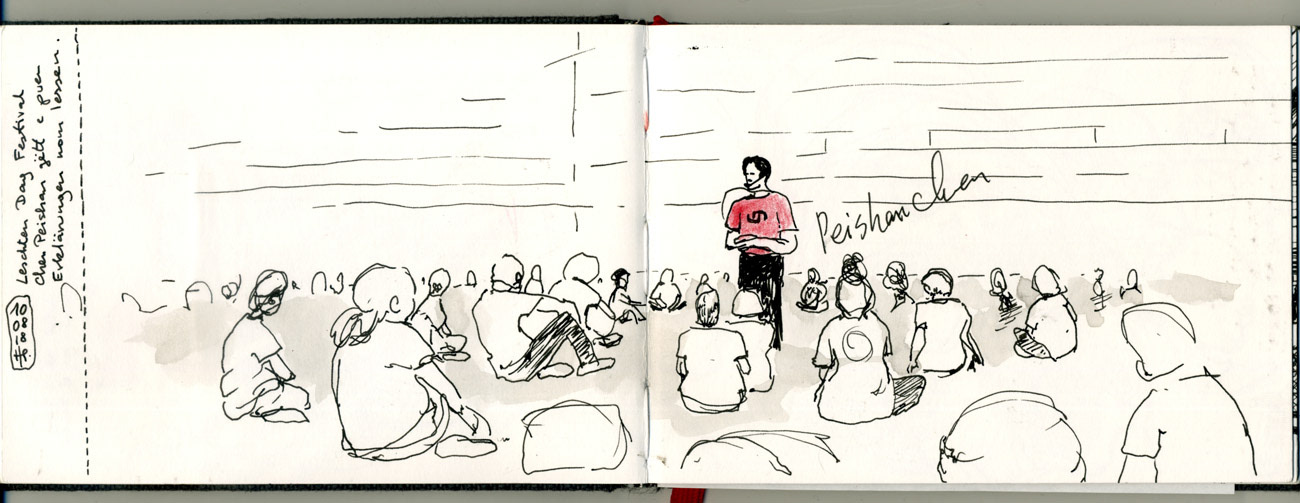 Leschten Dag Festival
chen Peishan gëtt e puer
Erklärungen nom lessen.
Peishan chen